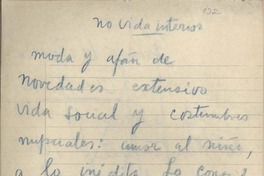 132
no vida interior
moda y afán de
novedades extensivo
vida social y costumbres
nupciales: amor al niño,
a lo inédito. Lo